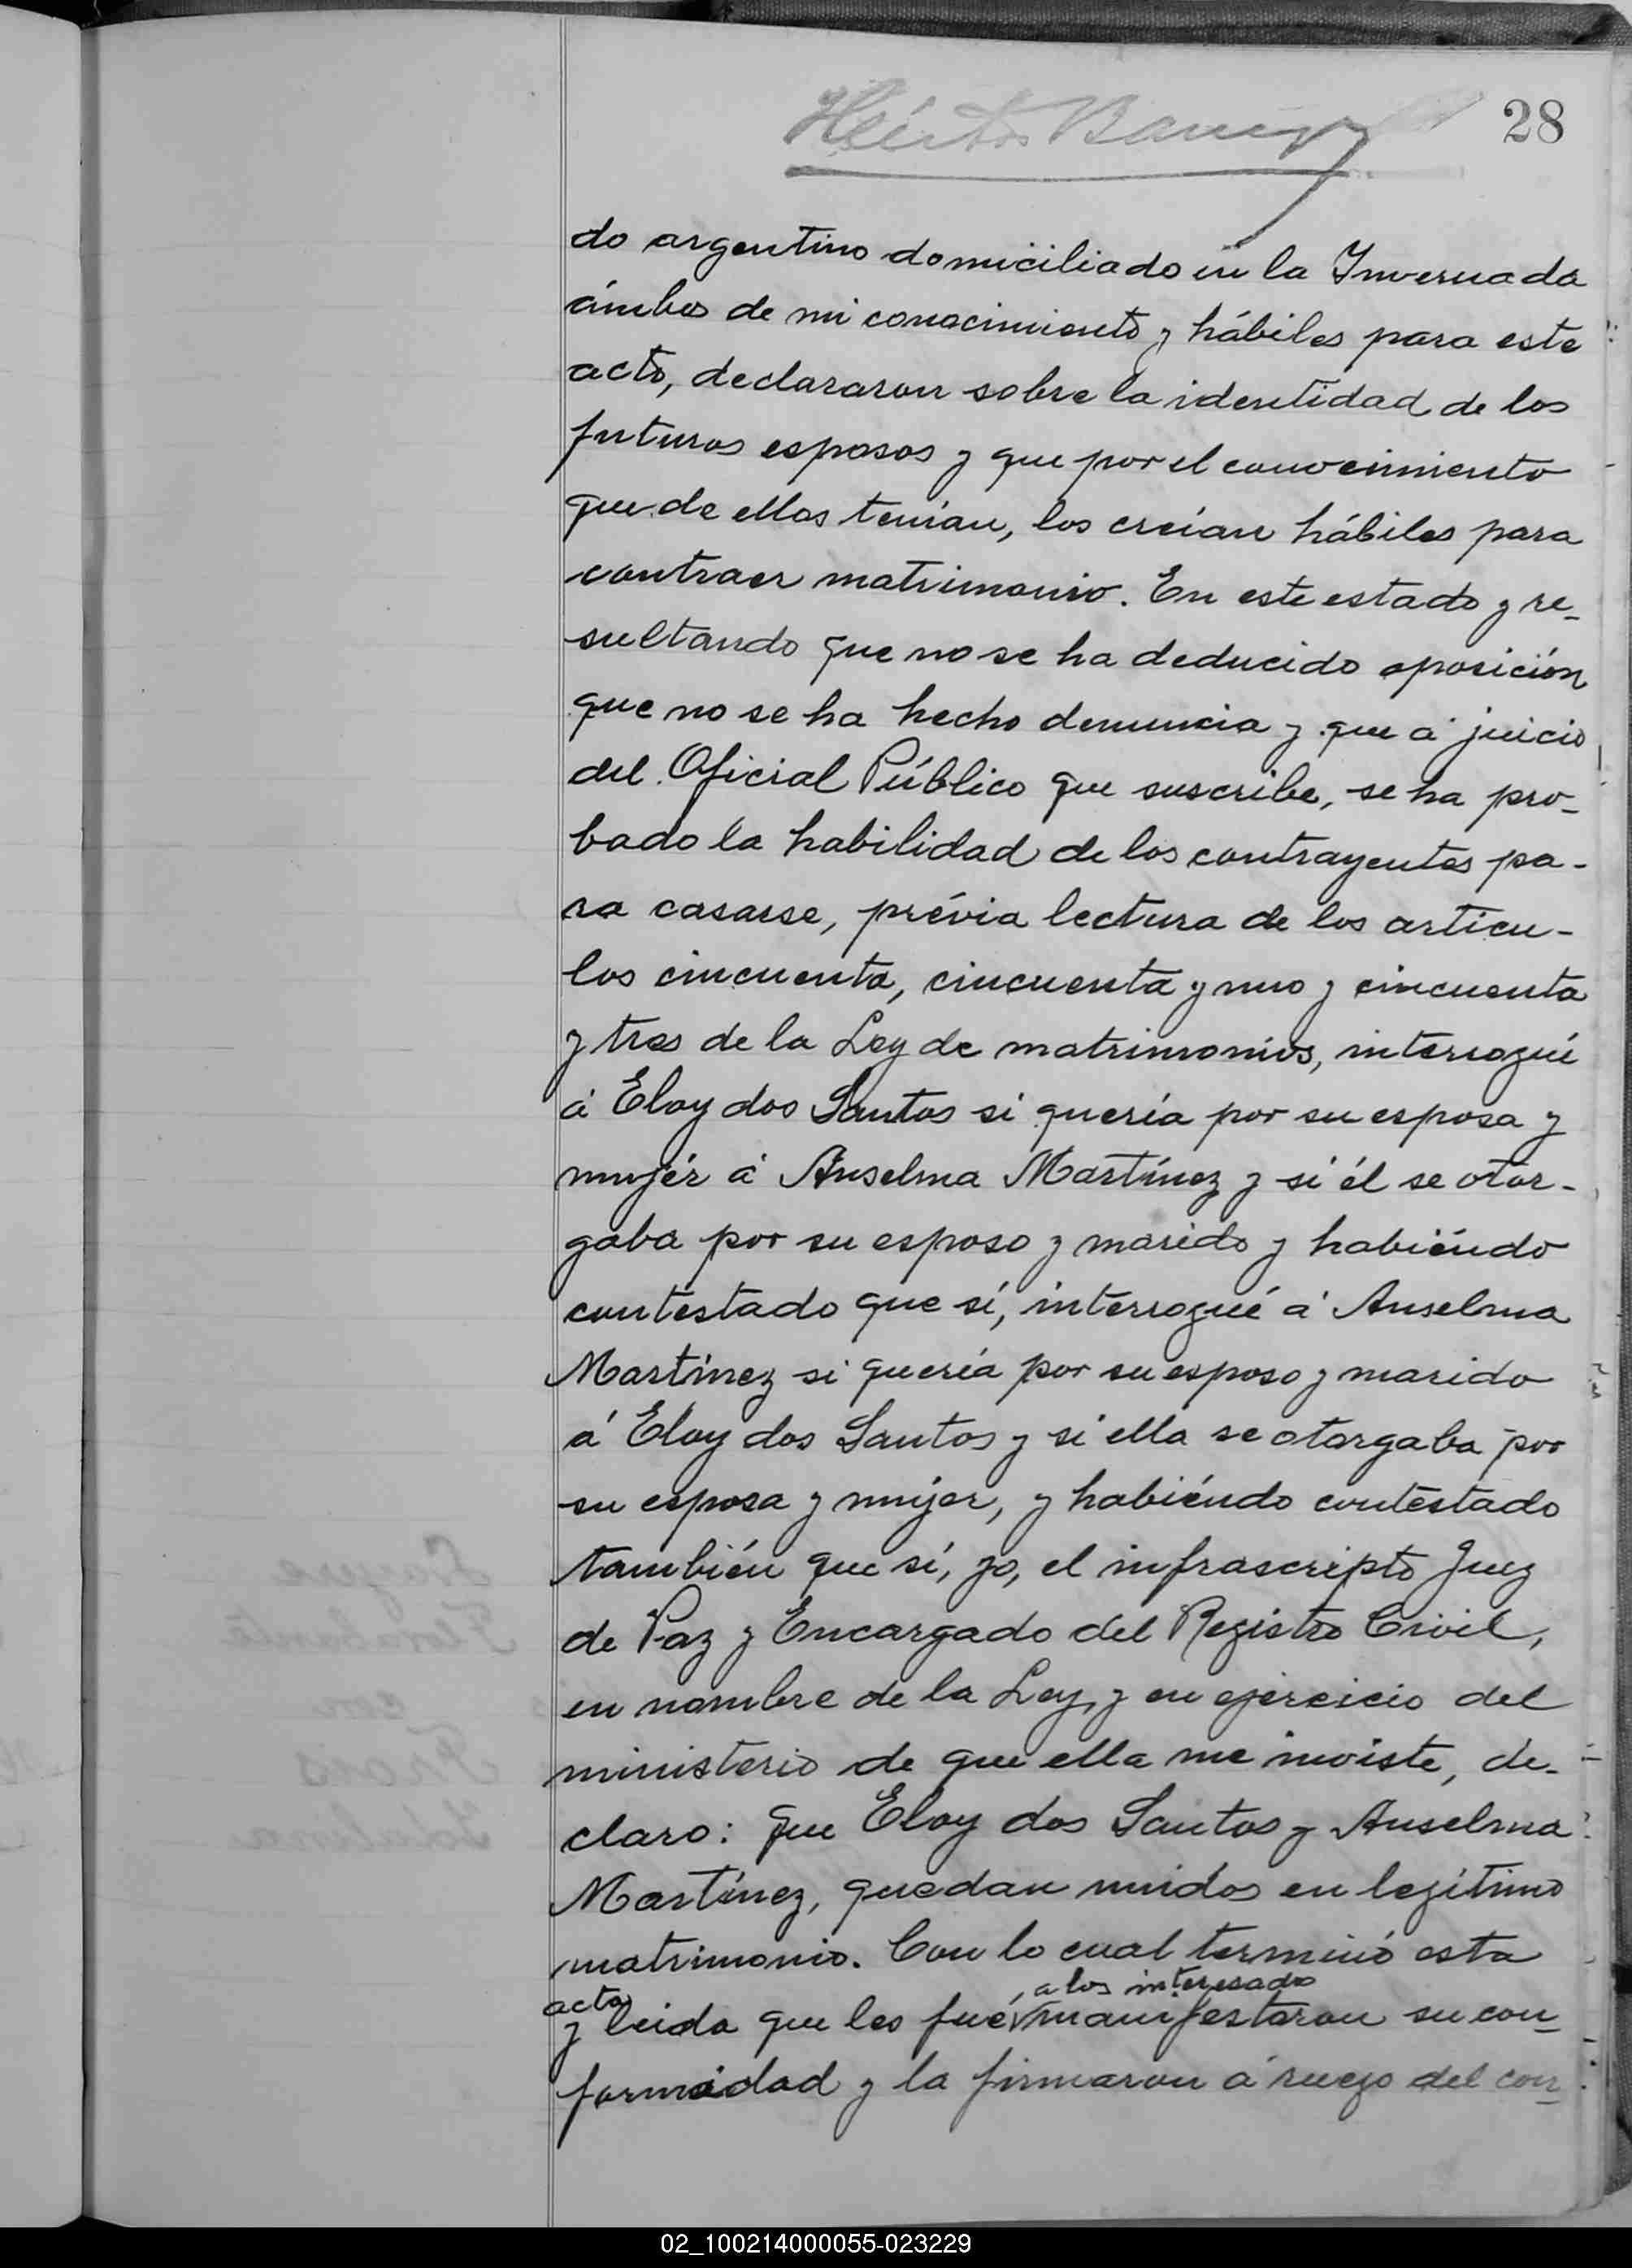 28
do argentino domiciliado en la Invernada
ámbos de mi conocimiento y hábiles para este
acto, declararon sobre la identidad de los
futuros esposos y que por el conocimiento
que de ellos tenían, los creían hábiles para
contraer matrimonio. En este estado y re-
sultando que no se ha deducido oposición
que no se ha hecho denuncia y que á juicio
del Oficial Público que suscribe, se ha pro-
bado la habilidad de los contrayentes pa-
ra casarse, prévia lectura de los artícu-
los cincuenta, cincuenta y uno y cincuenta
y tres de la Ley de matrimonios, interrogué
á Eloy dos Santos si quería por su esposa y
mujér á Anselma Martínez y si él se otor-
gaba por su esposo y marido y habiéndo
contestado que sí, interrogué á Anselma
Martínez si quería por su esposo y marido
á Eloy dos Santos y si ella se otorgaba por
su esposa y mujer, y habiéndo contestado
también que sí, yo, el infrascripto Juez
de Paz y Encargado del Registro Civil,
en nombre de la Ley, y en ejercicio del
ministerio de que ella me inviste, de-
claro: que Eloy dos Santos y Anselma
Martínez, quedan unidos en legítimo
matrimonio. Con lo cual terminó esta
acta, a los interesado
y leida que les fué, manifestaron su con-
formidad y la firmaron á ruego del con-
02_100214000055-023229